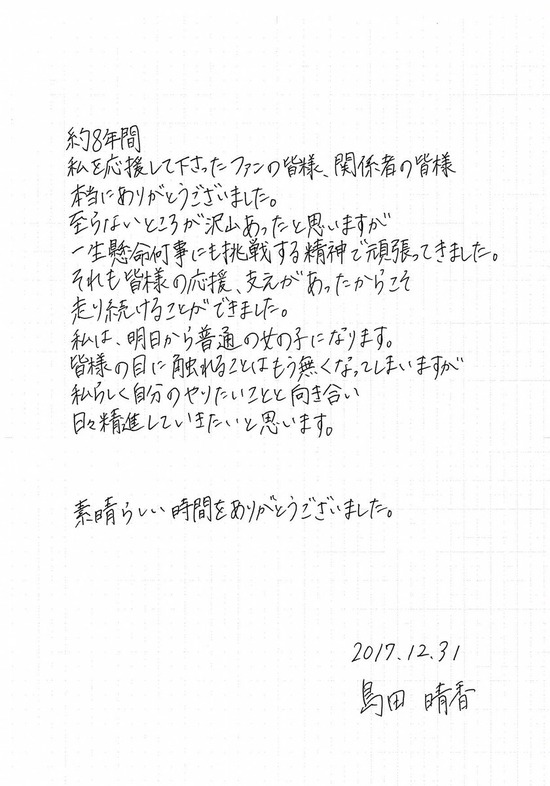 約8年間
私を応援して下さったファンの皆様、関係者の皆様
本当にありがとうございました。
至らないところが沢山あったと思いますが
一生懸命何事にも挑戦する精神で頑張ってきました。
それも皆様の応援、支えがあったからこそ
走り続けることができました。
私は、明日から普通の女の子になります。
皆様の目に触れることはもう無くなってしまいますが
私らしく自分のやりたいことと向き合い
日々精進していきたいと思います。
素晴らしい時間をありがとうございました。
2017.12.31
島田 晴香